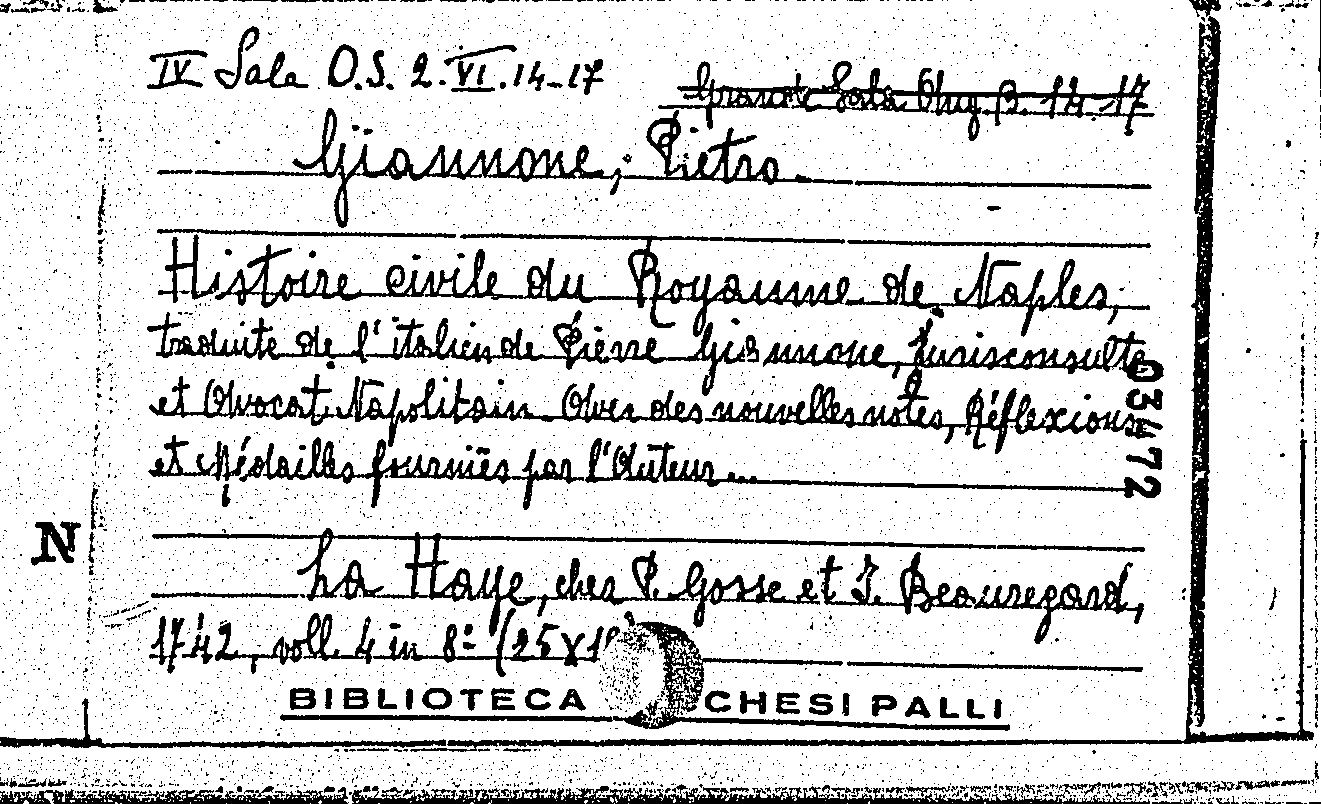 IV Sala O.S. 2. VI. 14-17
Grande Sala 14-17
Giannone, Pietro.
Histoire civile du Royaume de Naples,
traduite de l'italien de Pierre Giannone, Jurisconsulte
et Avocat Napolitain. Avec des nouvelles notes, Réflexions
et Médailles fournies par l'Auteur...
03472
N
La Haye, chez P. Gosse et I. Beauregard,
1742, voll. 4 in 8º (25x1
BIBLIOTECA CHESI PALLI